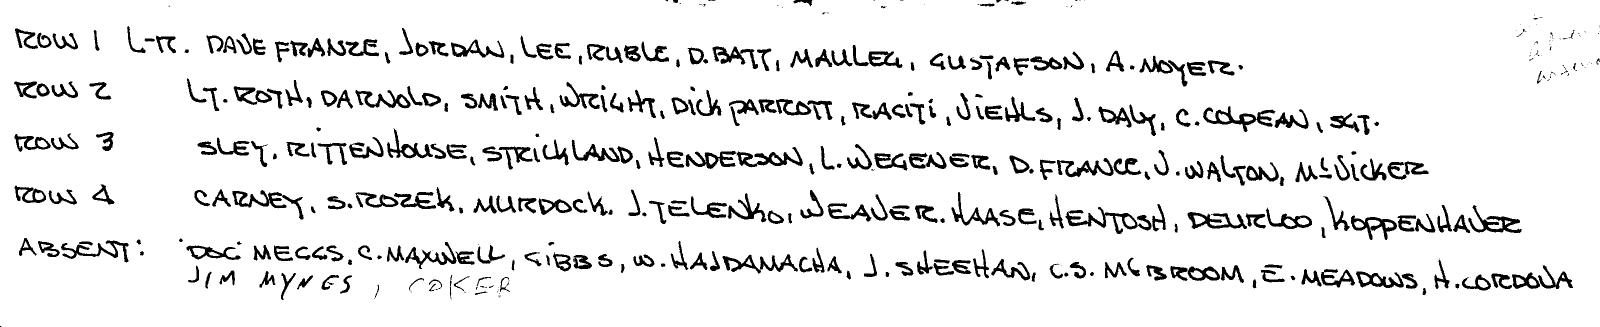 ROW 1 L-R. DAVE FRANZE, JORDAN, LEE, RUBLE, D. BATT, MAULEG, GUSTAFSON, A. MOYER.
ROW 2 LT. ROTH, DARNOLD, SMITH, WRIGHT, DICK PARROTT, RACITI, VIEHLS, J. DALY, C. COLPEAN, SGT.
ROW 3 SLEY, RITTENHOUSE, STRICKLAND, HENDERSON, L. WEGENER, D. FRANCE, J. WALTON, McVICKER
ROW 4 CARNEY, S. ROZEK, MURDOCK, J. TELENKO, WEAVER, HAASE, HENTOSH, KOPPENHAVER
ABSENT: "DOC" MEGGS, C. MAXWELL, GIBBS, W. HAJDAMACHA, J. SHEEHAN, C.S. McBROOM, E. MEADOWS, H. CORDOVA
JIM MYNES, COKER